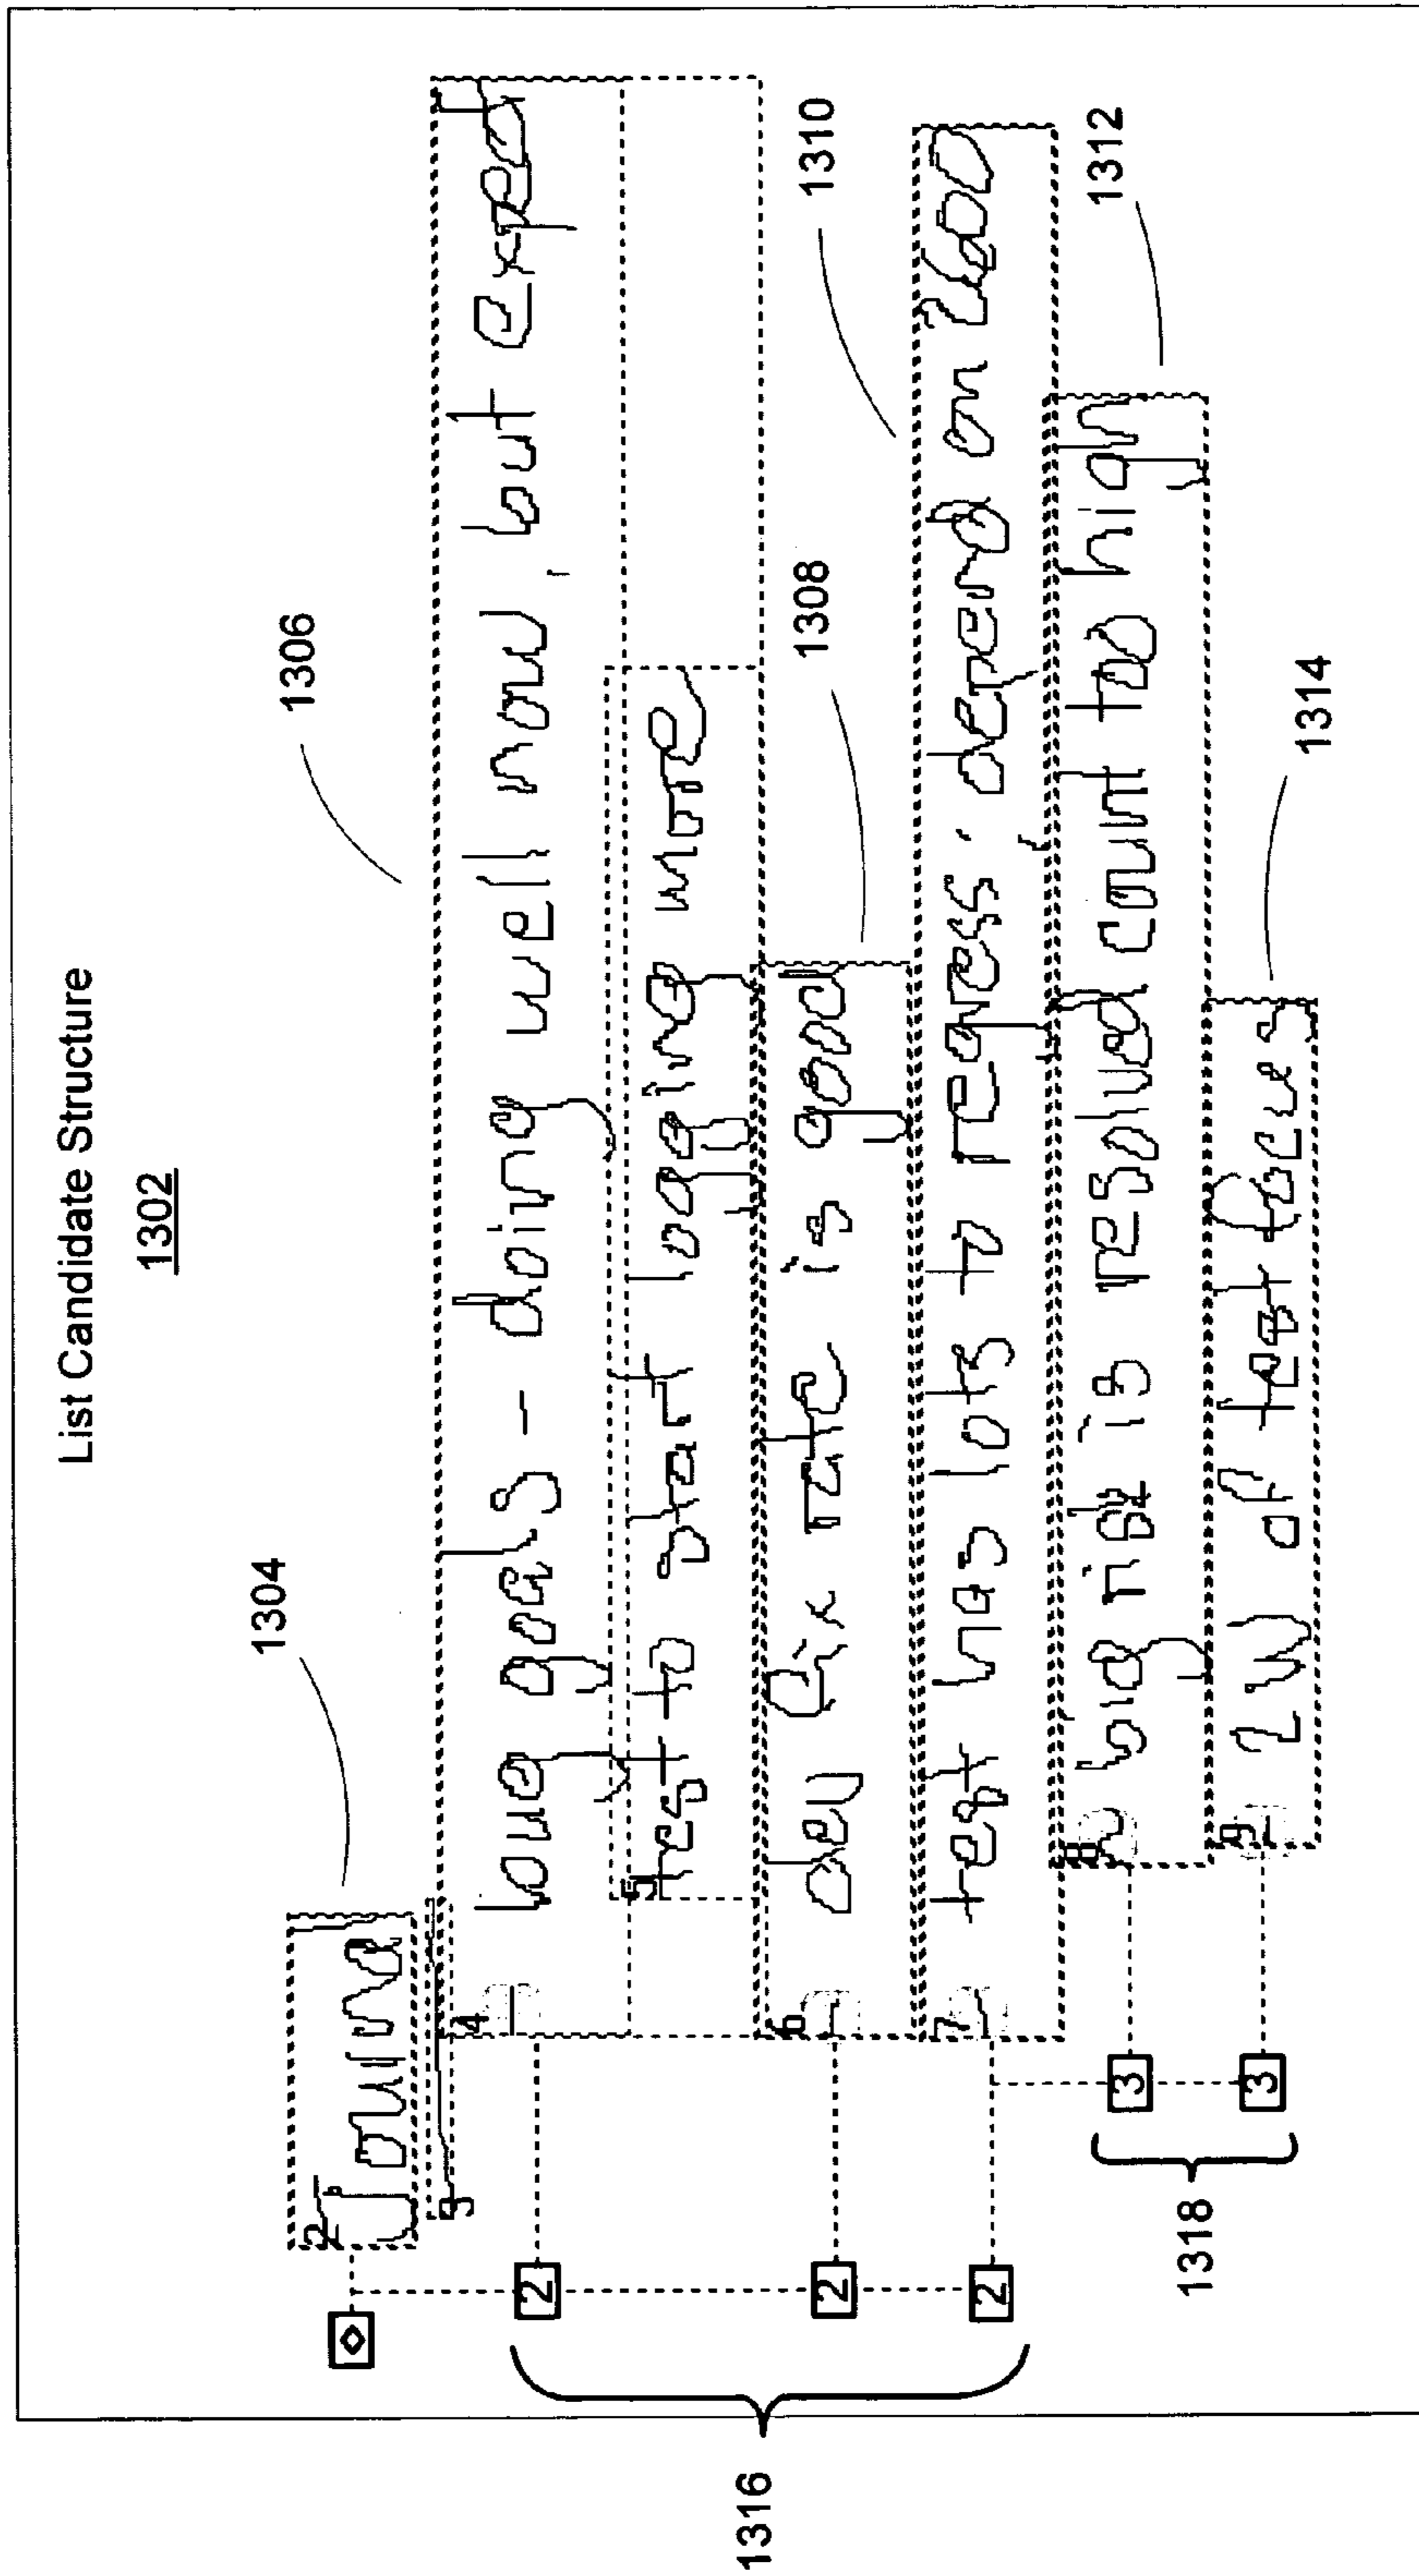 List Candidate Structure
1302
1304
1306
1310
1308
1312
1314
2
3
4 - bug goals - doing well now, but expect
5 test to start logging more
6 - dev fix rate is good
7 - test has lots to regress. depend on
8 big risk is resolved count too high
9 - 2W of test
2
2
2
3
3
1316
1318